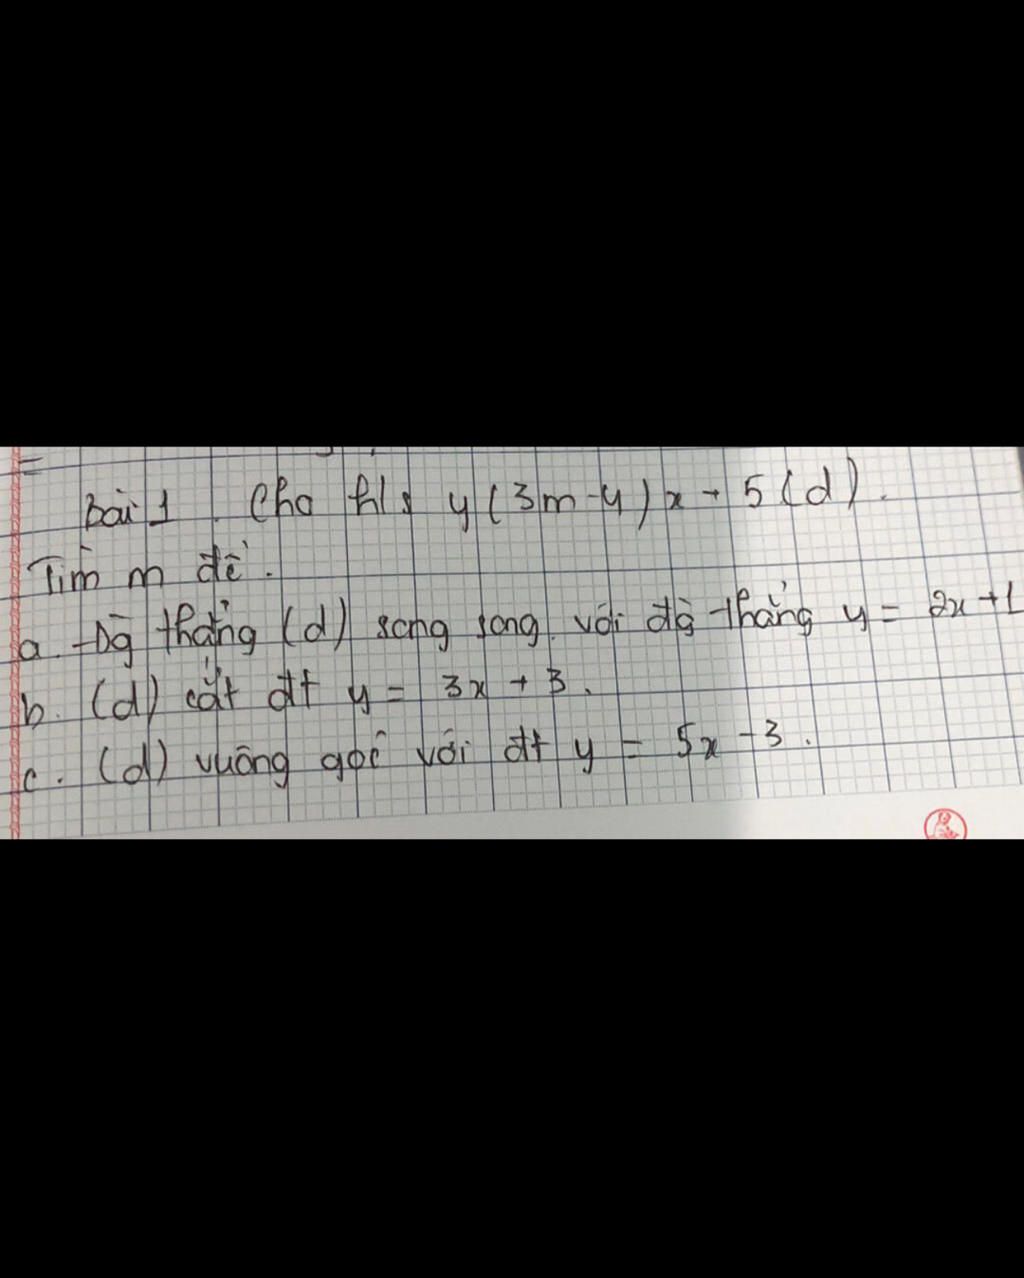 Bài 1. Cho h/s y(3m-4)x + 5 (d).
Tìm m để.
a. Đg thẳng (d) song song với đg thẳng y = 2x+1
b. (d) cắt đt y = 3x + 3.
c. (d) vuông góc với đt y = 5x - 3.